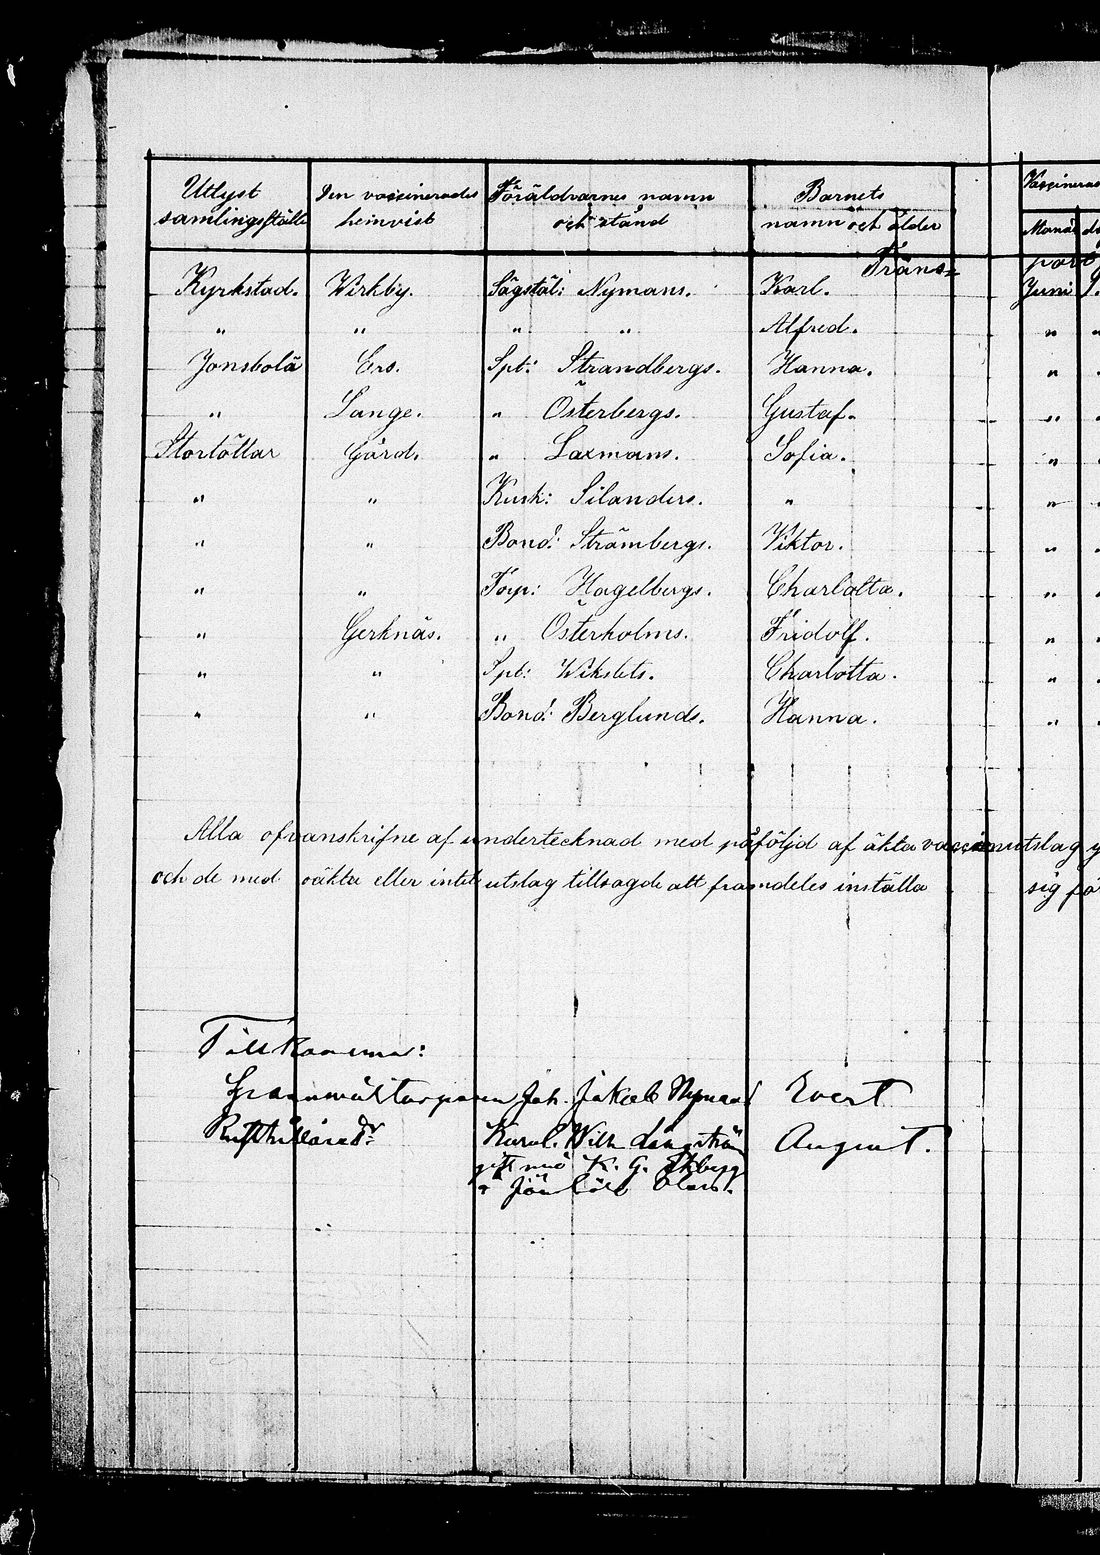 Utlyst samlingsställe Den vaccinerades hemvist Föräldrarnes namn och stånd Barnets namn och ålder Vaccinerad Månad
Trans= port
Kyrkstad. Virkby. Sågstäl: Nymans. Karl. Juni 9.
" " " " Alfred. "
Jonsbolä Ers. Spt: Strandbergs. Hanna. "
" Lange. " Österbergs. Gustaf. "
Stortötlar Gård. " Laxmans. Sofia. "
" " Kusk: Silanders. " "
" " Bond: Strömbergs. Viktor. "
" " Torp: Hagelbergs. Charlotta. "
" Gerknäs. " Österholms. Fridolf. "
" " Spt: Wiksléts. Charlotta. "
" " Bond: Berglunds. Hanna. "
Alla ofvanskrifne af undertecknad med påföljd af äkta vaccinutslag
och de med oäkta eller intet utslag tillsagde att framdeles inställa sig
Tillkommer:
Joh. Jakob Nyman Evert
Karol. Wilh. August.
gift med K. G.